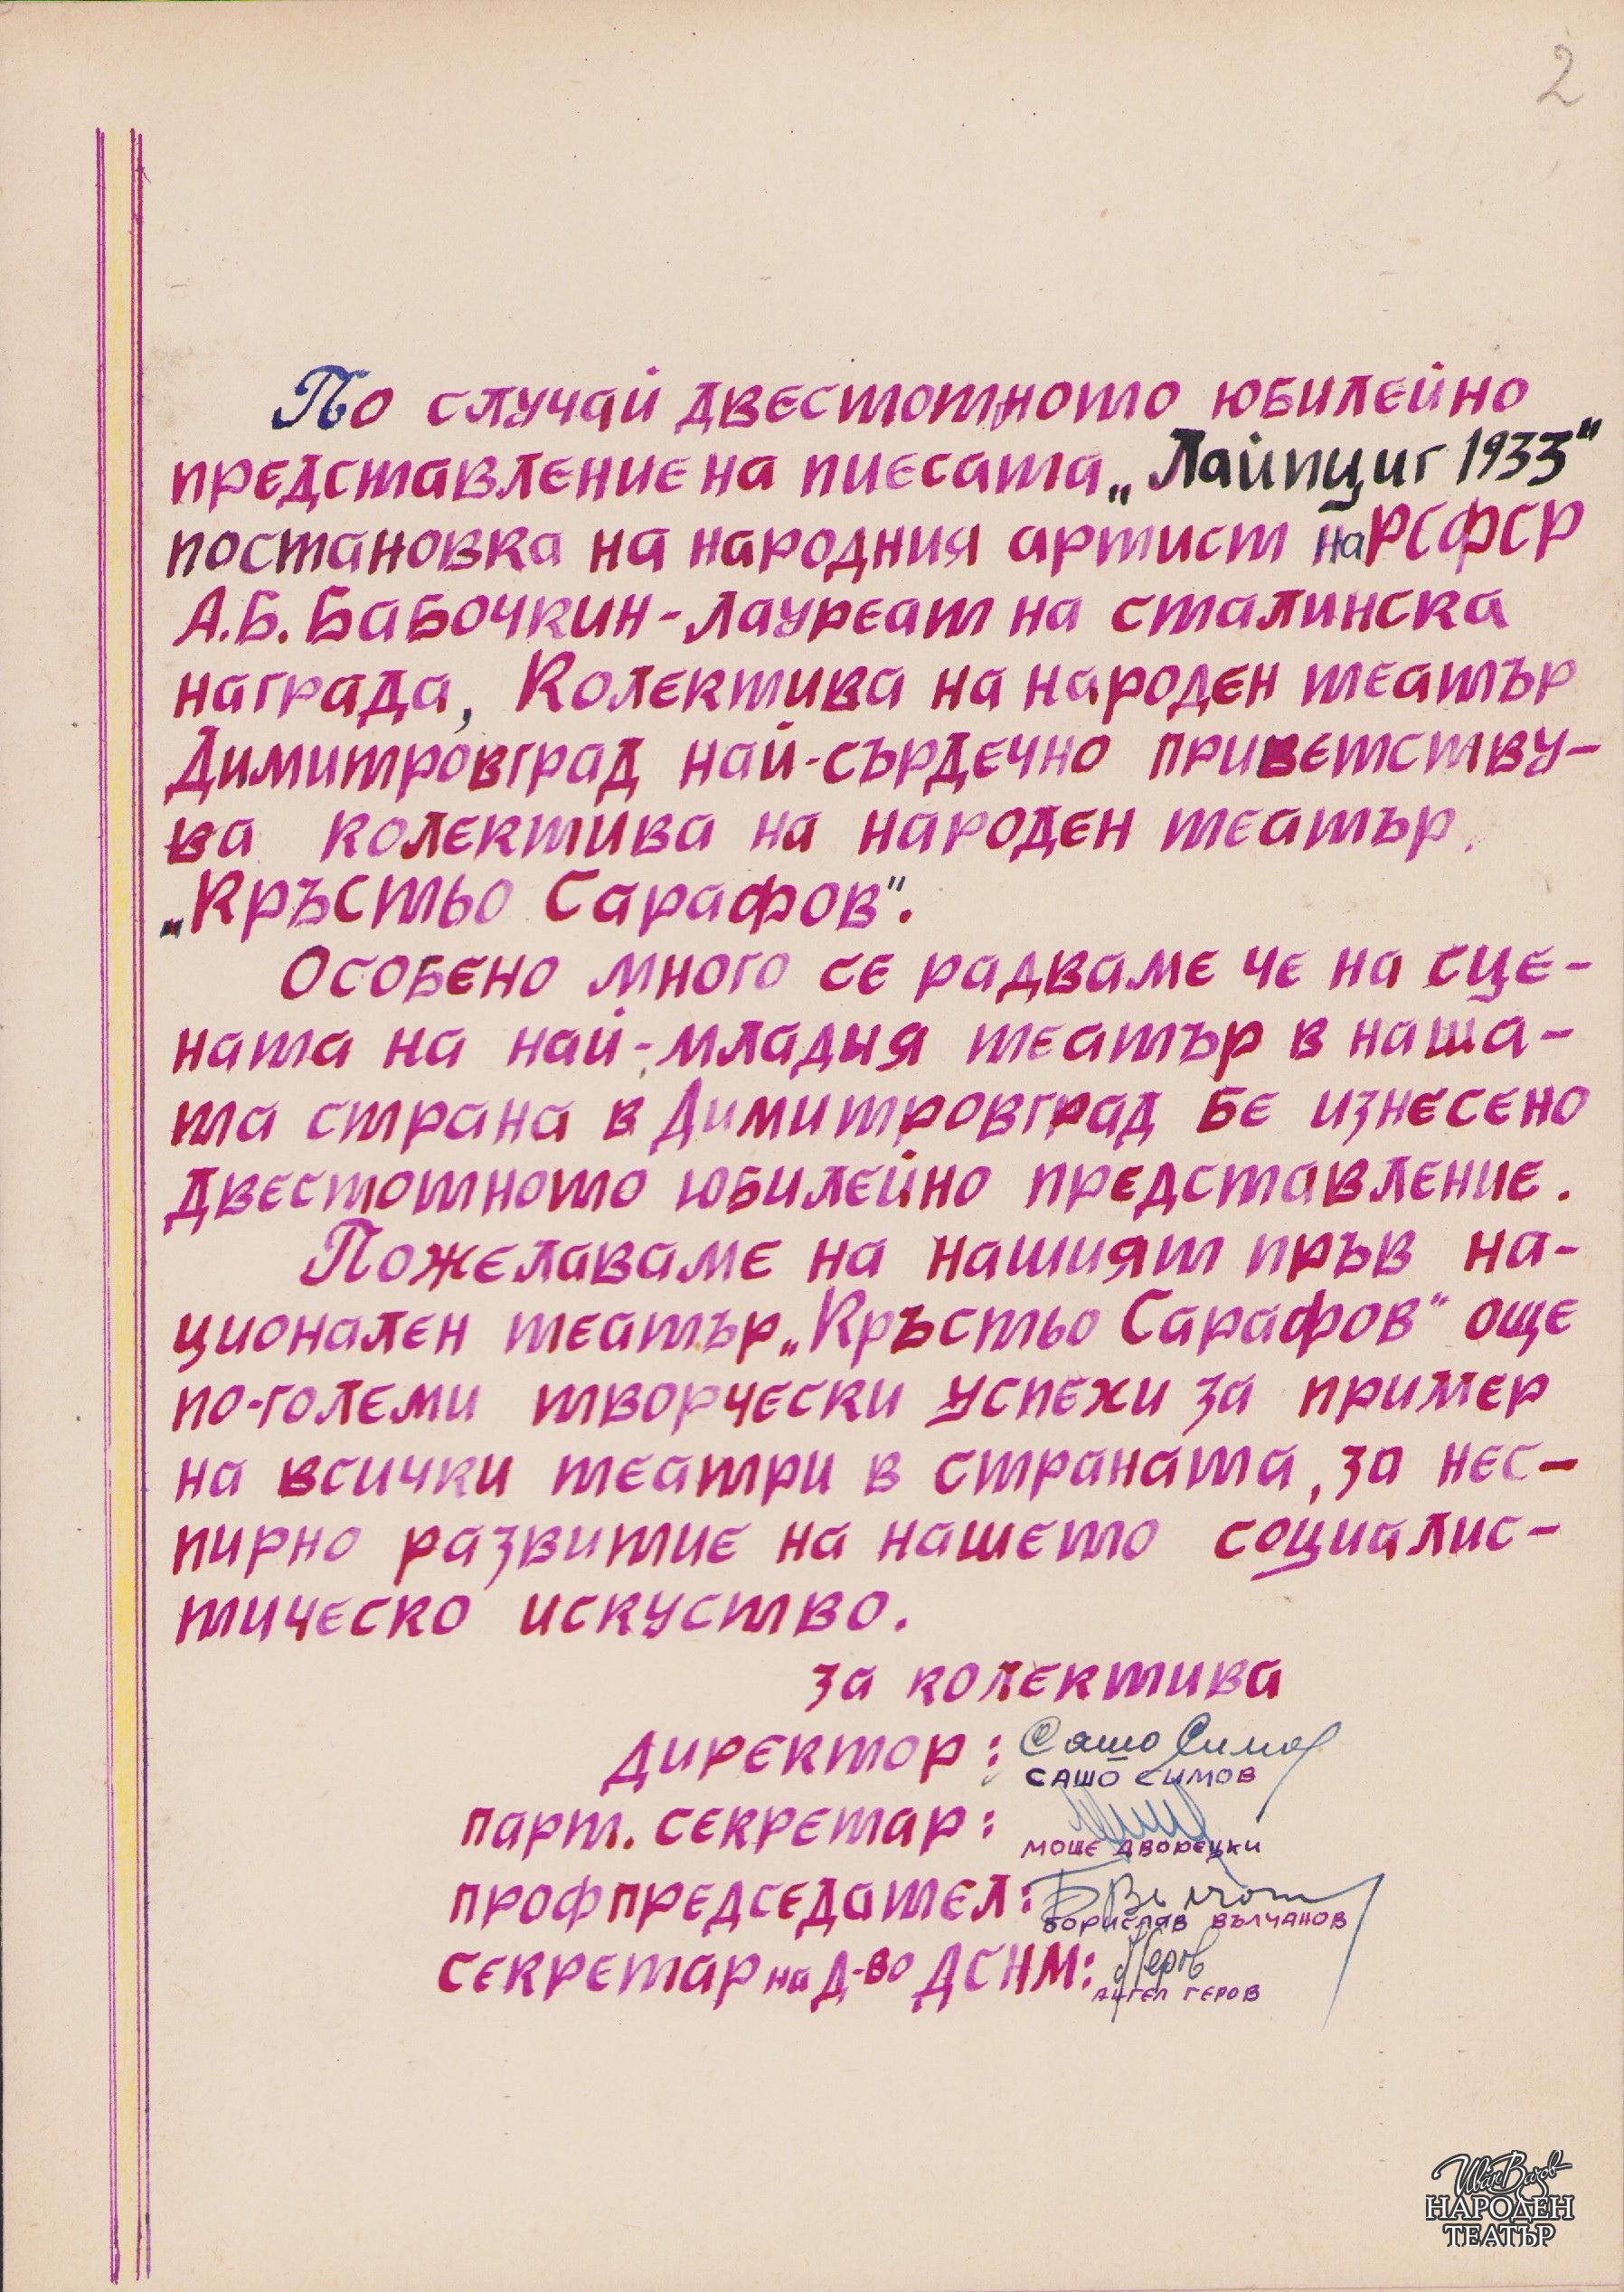 2
По случай двестотното юбилейно
представление на пиесата „Лайпциг 1933“
постановка на народния артист на РСФСР
А.Б. Бабочкин-лауреат на сталинска
награда, Колектива на народен театър
Димитровград най-сърдечно приветству-
ва колектива на народен театър
„Кръстьо Сарафов“.
Особено много се радваме че на сце-
ната на най-младия театър в наша-
та страна в Димитровград бе изнесено
двестотното юбилейно представление.
Пожелаваме на нашият пръв на-
ционален театър „Кръстьо Сарафов“ още
по-големи творчески успехи за пример
на всички театри в страната, за нес-
пирно развитие на нашето социалис-
тическо искуство.
за колектива
Директор: Сашо Симов
САШО СИМОВ
парт. секретар:
МОШЕ ДВОРЕЦКИ
профпредседател:
БОРИСЛАВ ВЪЛЧАНОВ
секретар на Д-во ДСНМ: Геров
АНГЕЛ ГЕРОВ
Иван Вазов
НАРОДЕН
ТЕАТЪР